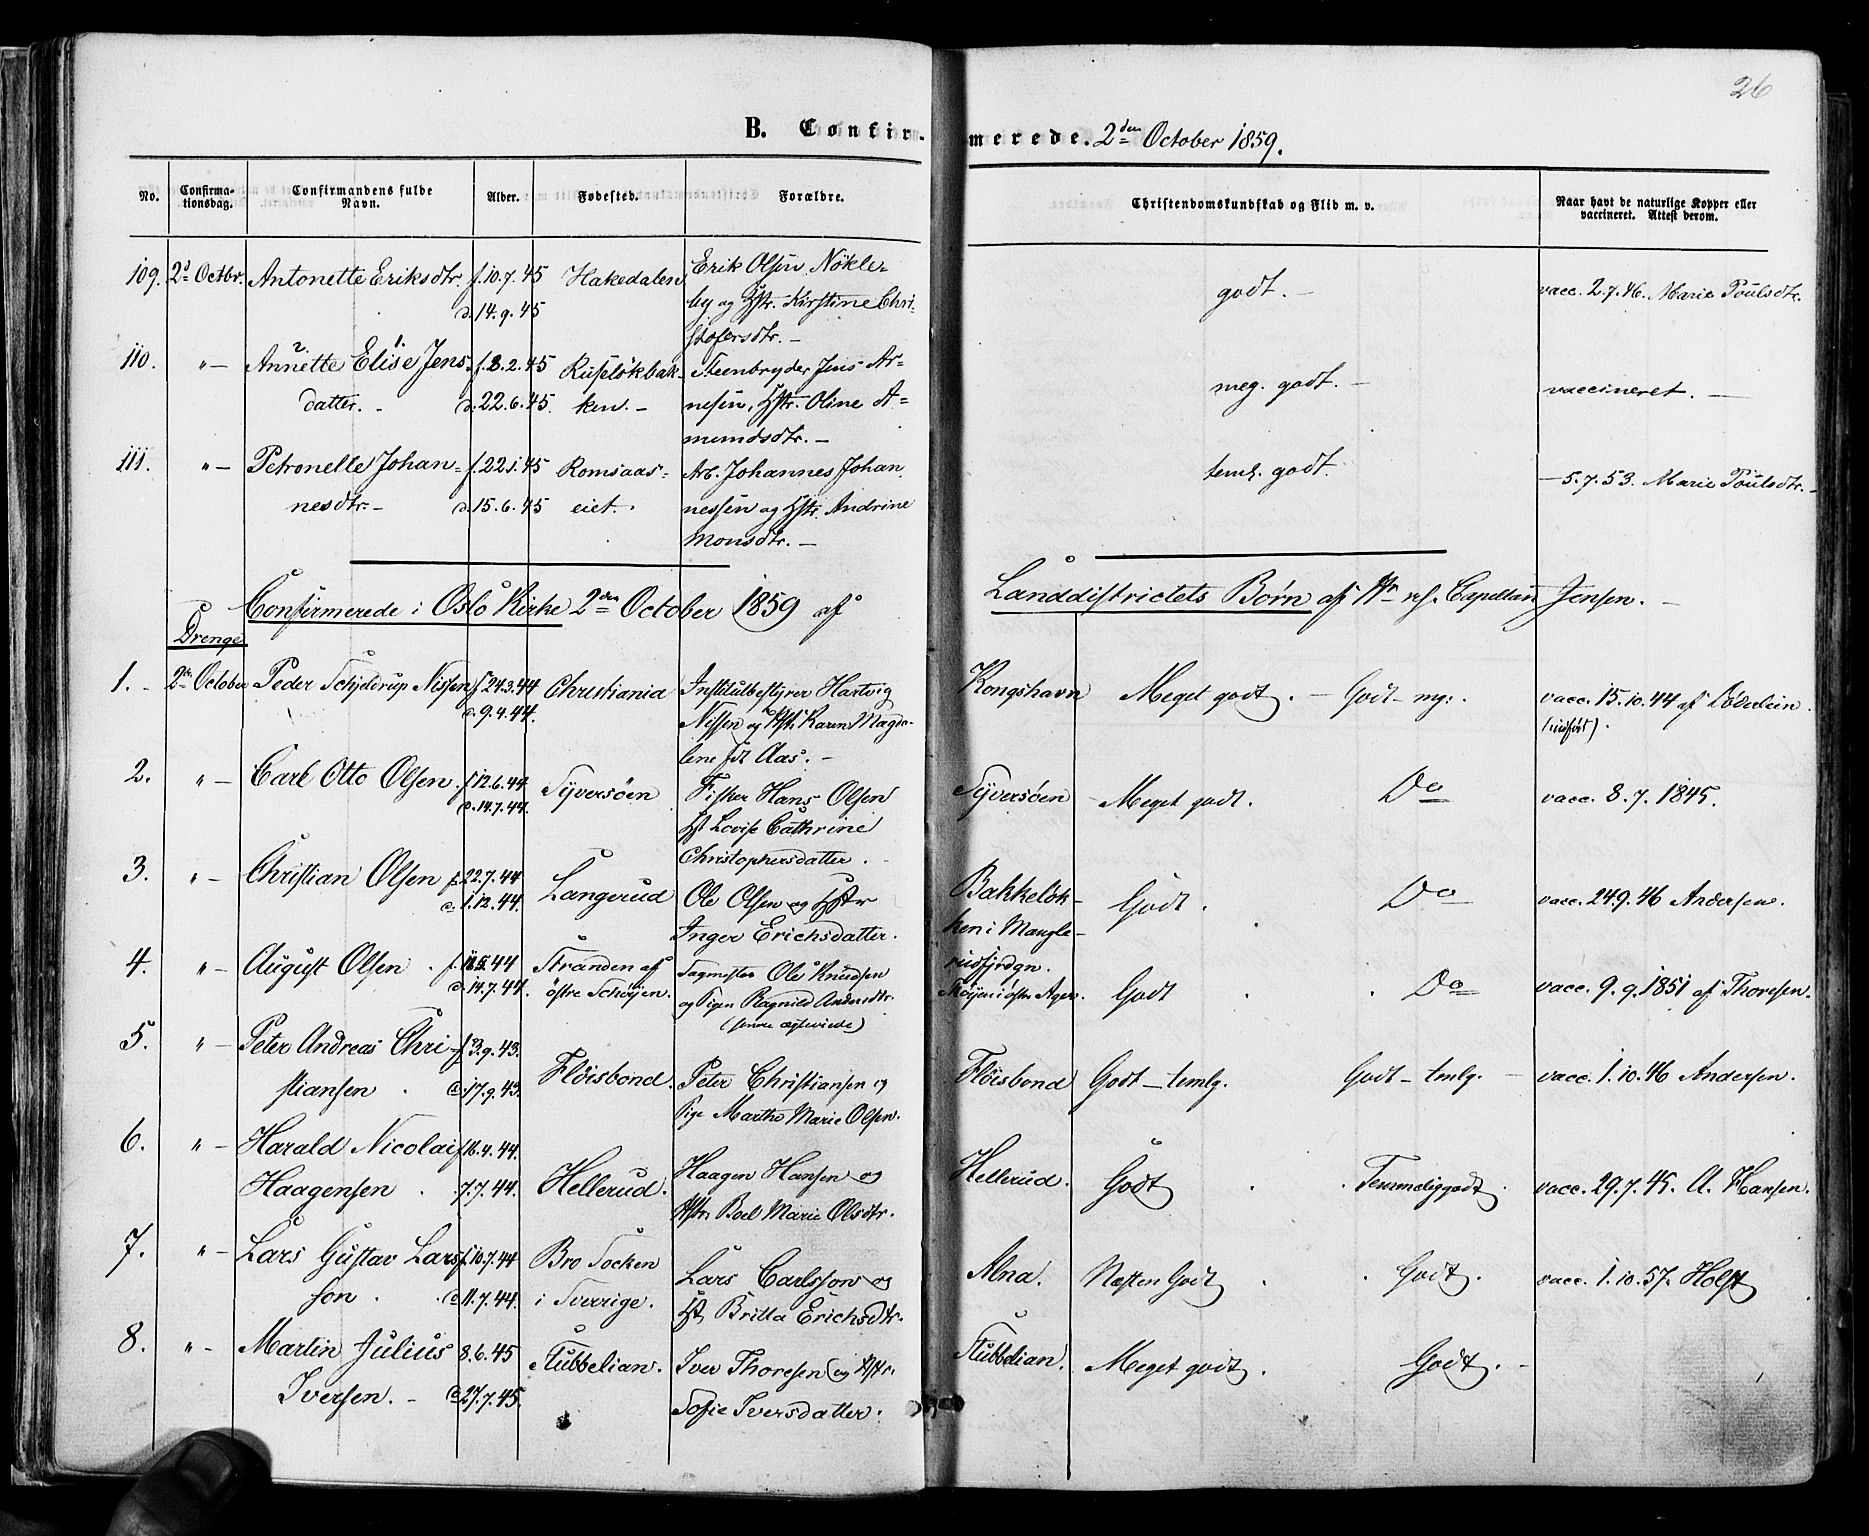 26
B. Confir-merede. 2den October 1859.
No. Confirma-tionsdag. Confirmandens fulde Navn. Alder. Fødested. Forældre. Christendomskundskab og Flid m. v. Naar havt de naturlige Kopper eller vaccineret. Attest derom.
109. 2d Octbr. Antonette Eriksdtr. f. 10.7.45 Hakedalen Erik Olsen Nökle- godt. — vacc. 2.7.46. Marie Poulsdtr.
d. 14.9.45 by og Hstr. Kirstine Chri-
stofersdtr. —
110. " — Annette Elise Jens- f. 8.2.45 Ruseløkbak- Steenbryder Jens Ar- meg. godt. — vaccineret. —
2. 1.
datter. - d. 22.6.45. ken. — nesen, Hstr. Oline A-
mundsdtr. —
111. " — Petronelle Johan- f. 22.1.45 Romsaas- Arb. Johannes Johan- teml. godt. — 5.7.53. Marie Poulsdtr. -
nesdtr. — d. 15.6.45 eiet. nessen og Hstr. Andrine
Monsdtr. —
Confirmerede i Oslo Kirke 2den October 1859 af Landdistrictets Børn af Hr. res. Capellan Jensen. —
Drenge
1. - 2den October Peder Schjeldrup Nissen f. 24.3.44 Christiania Institutbestyrer Hartvig Kongshavn Meget godt. — Godt - mg: vacc. 15.10.44 af Döderlein.
d. 9.4.44. Nissen og Hstr. Karen Magda- (indført).
lene fdt Aas. —
2. " — Carl Otto Olsen. f. 12.6.44 Syversöen Fisker Hans Olsen Syversöen - Meget godt. Do vacc. 8.7.1845.
d. 14.7.44. Hst Lovise Cathrine
Christophersdatter. -
3. " — Christian Olsen f. 22.7.44 Langerud Ole Olsen og Hstr Bakkeløk- Godt. Do vacc. 24.9.46 Andersen.
d. 1.12.44. Inger Erichsdatter. ken i Mangle-
rudfjrdgn.
4. " — August Olsen. f. 44 Stranden af Sagmester Ole Knudsen Thöijen i östre Ager Godt Do vacc. 9.9.1851 af Thoresen.
d. 14.7.44. östre Schöijen. og Pigen Ragnild Andersdtr.
(senere ægteviede)
5. " — Peter Andreas Chri- f. 3.9.43. Flöisbond. Peter Christiansen og Flöisbond Godt - temlg. Godt - temlg. — vacc. 1.10.46 Andersen.
stiansen. d. 17.9.43. Pige Marthe Marie Olsen.
6. " — Harald Nicolai f. 16.4.44. Hellerud. Haagen Hansen og Hellerud. Godt Temmeliggodt. vacc. 29.7.45. A. Hansen.
Haagensen. 7.7.44. Hstr. Boel Marie Olsdtr.
7. " — Lars Gustav Lars- f. 10.7.44 Bro Socken Lars Carlsson og Alna. Næsten Godt Godt. vacc. 1.10.57. Holst
son. d. 11.7.44. i Sverrige. Hst. Britta Erichsdtr.
8. " — Martin Julius 8.6.45 Stubbelian. Iver Thoresen og Hstr. Stubbelian. Meget godt. Godt. —
Iversen. — d. 27.7.45. Sofie Iversdatter.